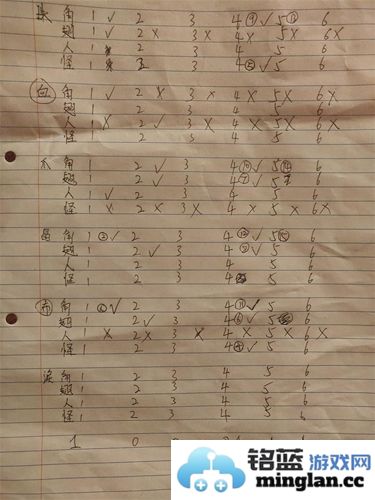 长 角 1 ✓ 2 3 4 ⑨ ✓ 5 ⑬ 6
翅 1 ✓ 2 X 3 X 4 X 5 X 6 X
人 1 2 3 4 5 6
怪 1 2 3 4 ⑤ ✓ 5 6
白 角 1 ✓ 2 X 3 X 4 X 5 X 6 X
翅 1 2 3 4 5 6
人 1 X 2 ✓ 3 X 4 X 5 X 6 X
怪 1 2 3 4 5 6
爪 角 1 2 ✓ 3 4 ⑩ ✓ 5 ⑭ 6
翅 1 2 ✓ 3 4 ⑦ ✓ 5 6
人 1 ✓ 2 3 4 5 6
怪 1 X 2 X 3 X 4 X 5 X 6 X
角 1 ③ ✓ 2 3 4 ⑫ ✓ 5 ⑮ 6
翅 1 2 ✓ 3 4 ✓ 5 6
人 1 2 3 4 5 6
怪 1 2 3 4 5 6
布 角 1 ✓ 2 3 4 ⑪ ✓ 5 6
翅 1 2 ✓ 3 4 ⑥ ✓ 5 6
人 1 X 2 X 3 X 4 X 5 X 6 X
怪 1 2 3 4 ⑧ ✓ 5 6
角 1 2 3 4 5 6
翅 1 2 3 4 5 6
人 1 2 3 4 5 6
怪 1 2 3 4 5 6
1 0
铭蓝游戏网
minglan.cc